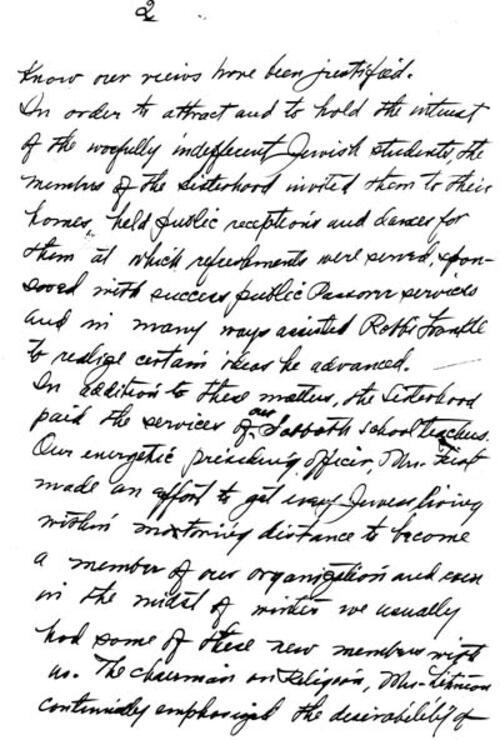 2
Know our views have been justified.
In order to attract and to hold the interest
of the woefully indifferent Jewish students, the
members of the Sisterhood invited them to their
homes, held public receptions and dances for
them at which refreshments were served, spon-
sored with success public Passover services
and in many ways assisted Rabbi
to realize certain ideas he advanced.
In addition to these matters, the Sisterhood
paid the services of our Sabbath school teachers.
Our energetic presiding officer, Mrs.
made an effort to get every Jewess living
within motoring distance to become
a member of our organization and even
in the midst of winter we usually
had some of these new members with
us. The chairman on Religion, Mrs.
continually emphasized the desirability of